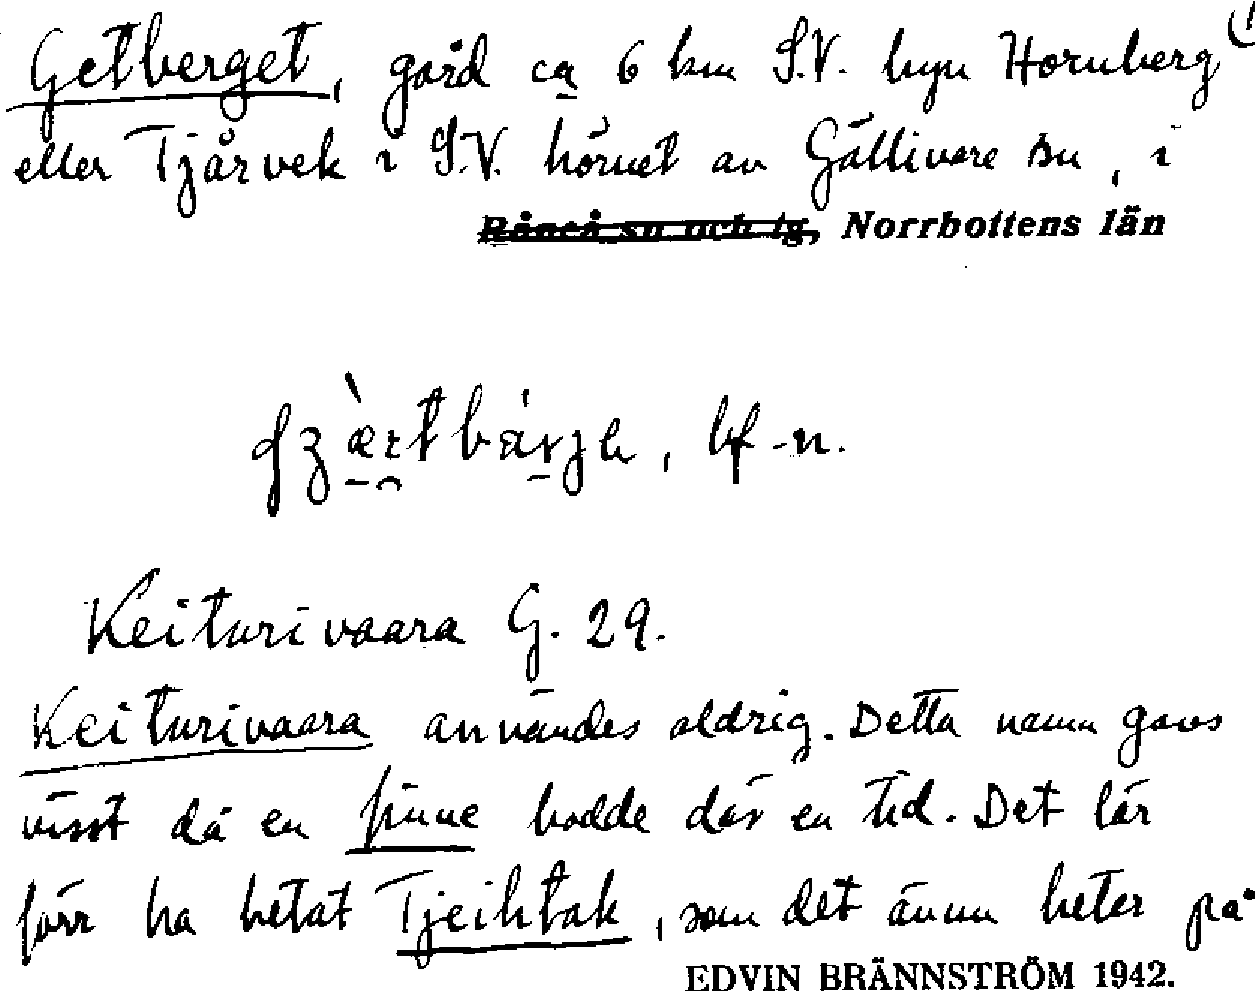 Getberget, gård ca 6 km S.V. byn Hornberg
eller Tjårvek i S.V. hörnet av Gällivare sn, i
Råneå sn och tg, Norrbottens län
bf -n.
Keiturivaara G. 29.
Keiturivaara användes aldrig. Detta namn gavs
visst då en finne bodde där en tid. Det lär
förr ha hetat Tjeihtak, som det ännu heter på
EDVIN BRÄNNSTRÖM 1942.